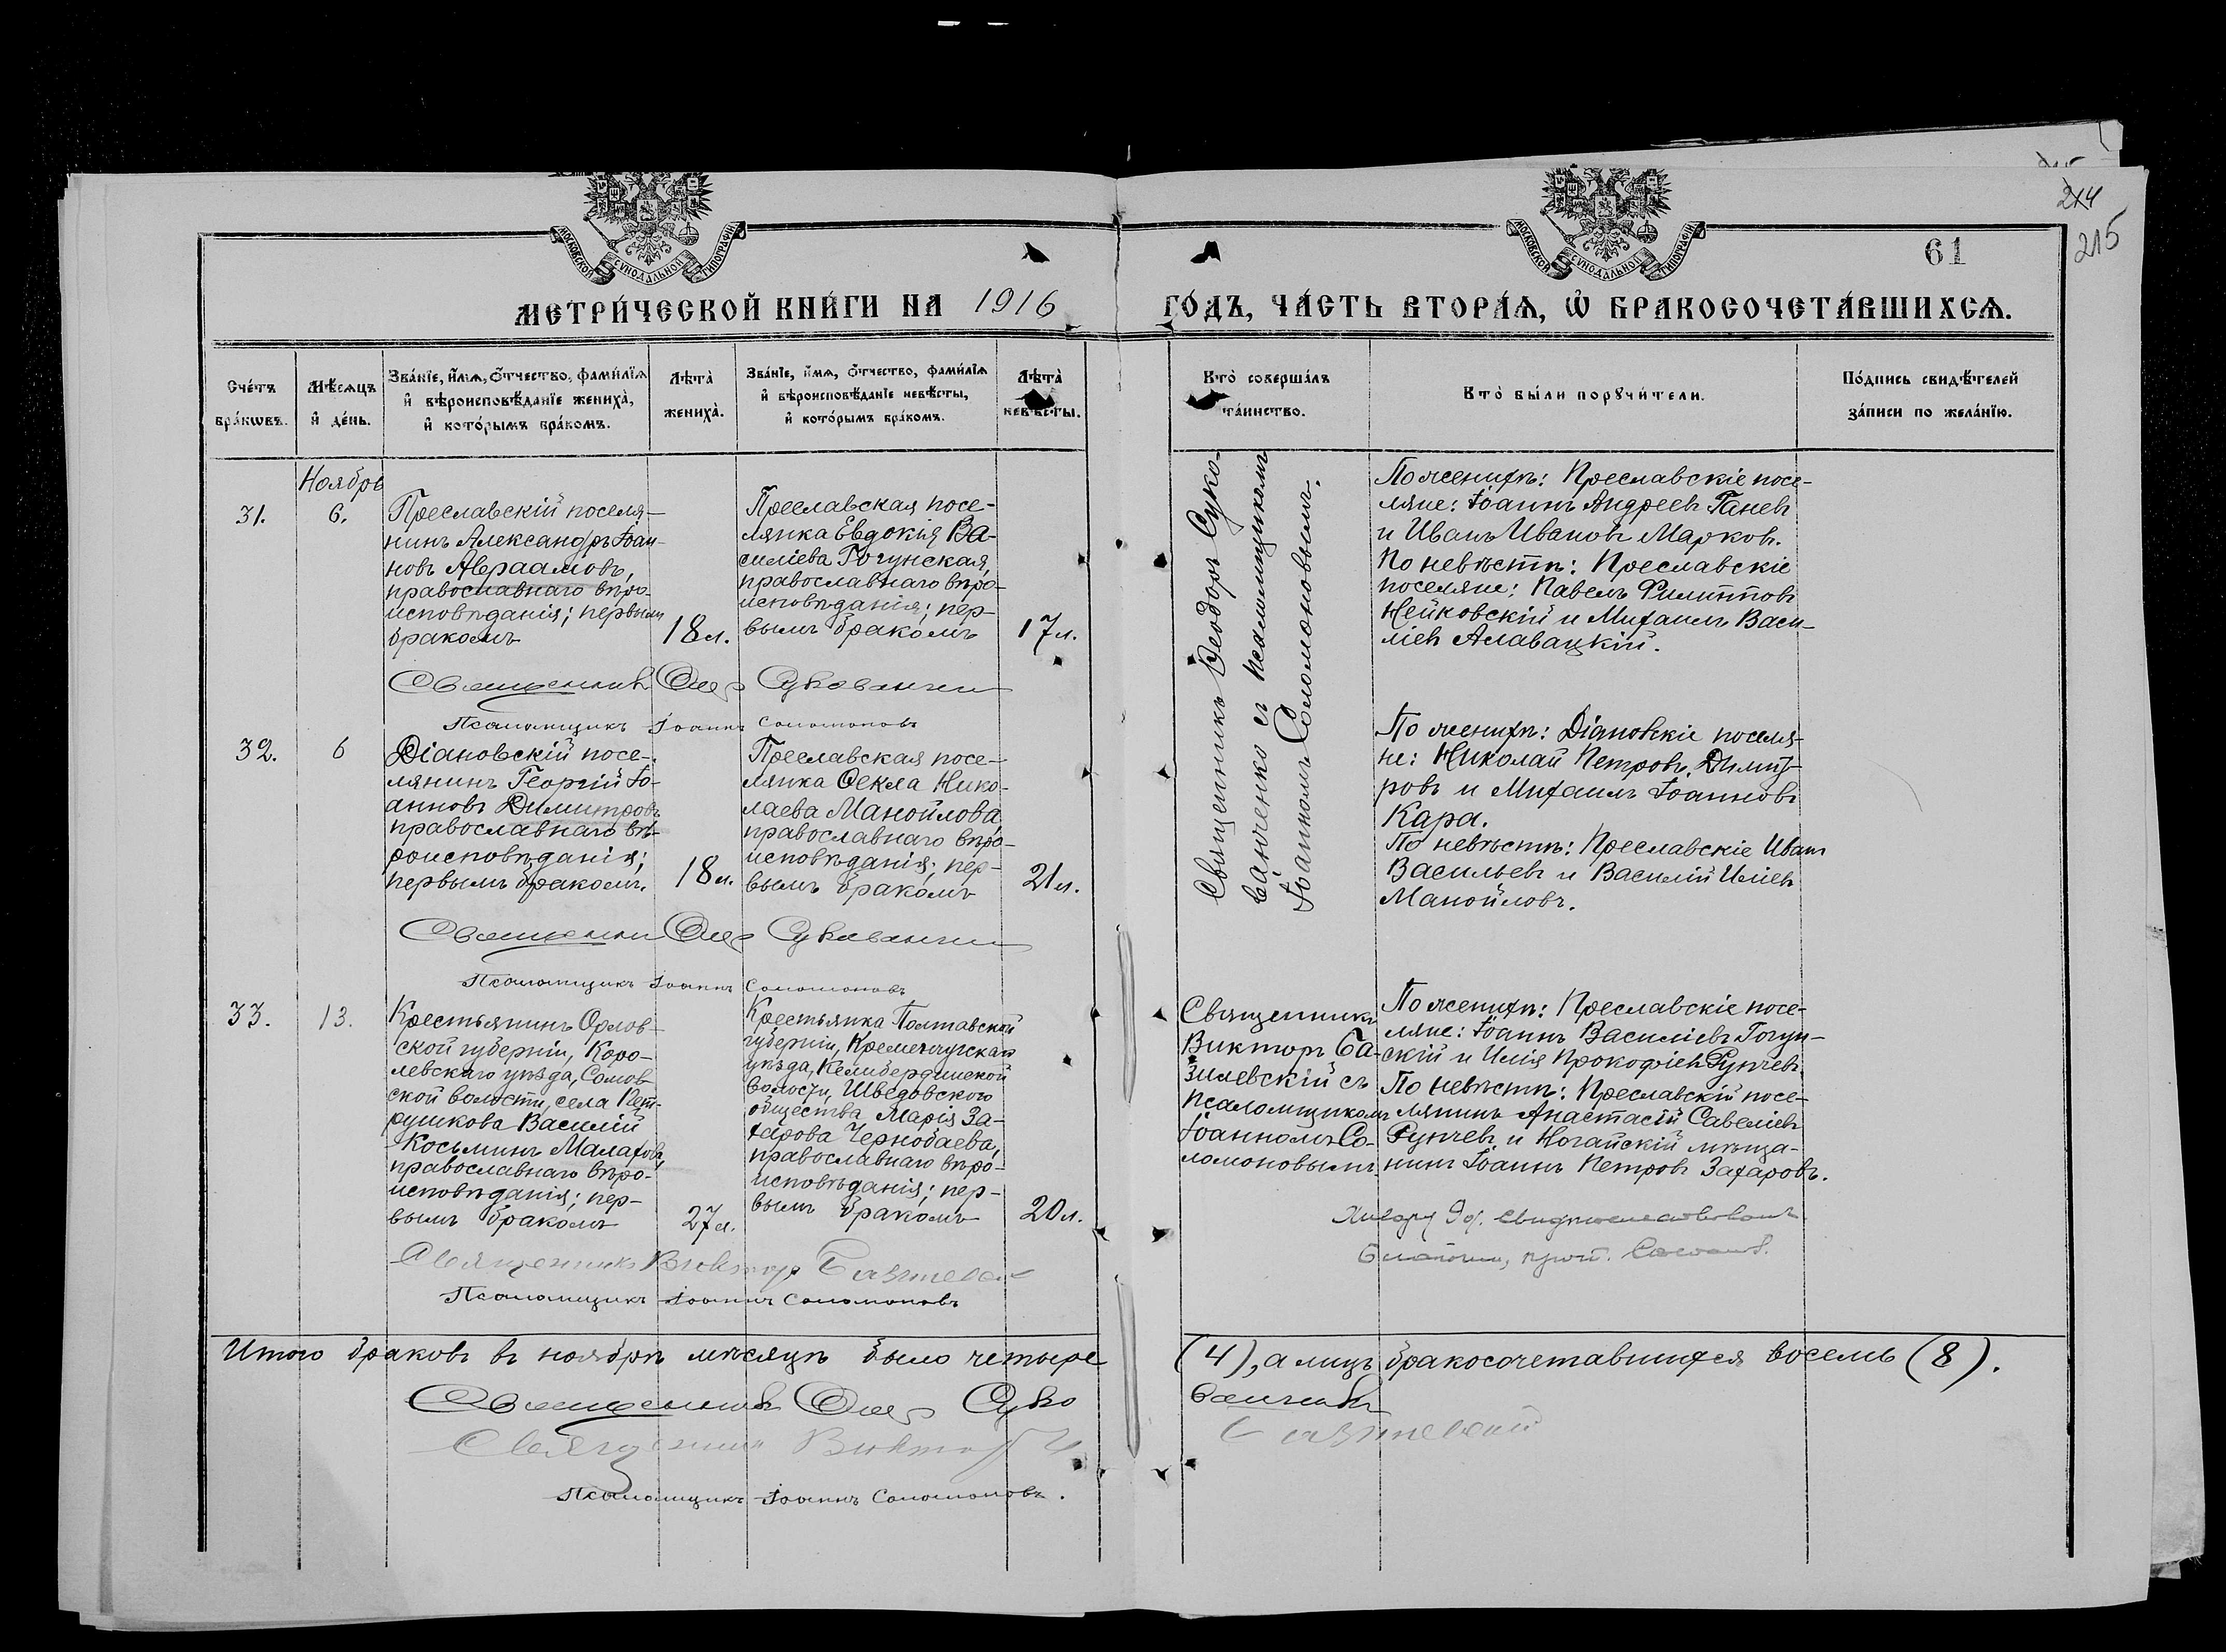 214
215
МОСКОВСКОЙ СѴНОДАЛЬНОЙ ТИПОГРАФІИ
МОСКОВСКОЙ СѴНОДАЛЬНОЙ ТИПОГРАФІИ
61
МЕТРИ́ЧЕСКОЙ КНИ́ГИ НА 1916
ГО́ДЪ, ЧА́СТЬ ВТОРА́Ѧ, Ѡ҆ БРАКОСОЧЕТА́ВШИХСѦ.
Сче́тъ бра́кѡвъ.
Мѣ́сѧцъ и҆ де́нь.
Зва́нїе, и҆́мѧ, ѻ҆́тчество, фами́лїѧ
и҆ вѣроисповѣ́данїе жениха̀,
и҆ кото́рымъ бра́комъ.
Лѣ́та̀ жениха̀.
Зва́нїе, и҆́мѧ, ѻ҆́тчество, фами́лїѧ
и҆ вѣроисповѣ́данїе невѣ́сты,
и҆ кото́рымъ бра́комъ.
Лѣ́та̀ невѣ́сты.
Кто̀ соверша́лъ
та́инство.
Кто̀ бы́ли порꙋчи́тели.
По́дпись свидѣ́телей
за́писи по жела́нїю.
Ноябрь
31.
6.
Преславскій поселя-
нинъ Александръ Іоан-
новъ Авраамовъ,
православнаго вѣро-
исповѣданія; первымъ
бракомъ
18 л.
Преславская посе-
лянка Евдокія Ва-
силіева Гогунская,
православнаго вѣро-
исповѣданія; пер-
вымъ бракомъ
17 л.
Священникъ Ѳеодоръ Суко-
ванченко съ псаломщикомъ
Іоанномъ Соломоновымъ.
По женихѣ: Преславскіе посе-
ляне: Іоаннъ Андреевъ Ганевъ
и Иванъ Ивановъ Марковъ.
По невѣстѣ: Преславскіе
поселяне: Павелъ Филипповъ
Нейковскій и Михаилъ Васи-
ліевъ Алавацкій.
Священникъ Ѳеод Сукованчен
Псаломщикъ Іоаннъ Соломоновъ
32.
6
Діановскій посе-
лянинъ Георгій Іо-
анновъ Димитровъ
православнаго вѣ-
роисповѣданія;
первымъ бракомъ.
18 л.
Преславская посе-
лянка Ѳекла Нико-
лаева Манойлова,
православнаго вѣро-
исповѣданія; пер-
вымъ бракомъ
21 л.
По женихѣ: Діановскіе поселя-
не: Николай Петровъ Димит-
ровъ и Михаилъ Іоанновъ
Кара.
По невѣстѣ: Преславскіе Иванъ
Васильевъ и Василій Иліевъ
Манойловъ.
Священни Ѳеод Сукованчен
Псаломщикъ Іоаннъ Соломоновъ
33.
13.
Крестьянинъ Орлов-
ской губерніи, Каро-
левскаго уѣзда, Сомов-
ской волости, села Пет-
рушкова Василій
Косьминъ Малаховъ,
православнаго вѣро-
исповѣданія; пер-
вымъ бракомъ
27 л.
Крестьянка Полтавской
губерніи, Кременчугскаго
уѣзда, Келибердинской
волости, Шведовского
общества Марія За-
харова Чернобаева,
православнаго вѣро-
исповѣданія; пер-
вымъ бракомъ
20 л.
Священникъ
Викторъ Ба-
зилевскій съ
псаломщикомъ
Іоанномъ Со-
ломоновымъ.
По женихѣ: Преславскіе посе-
ляне: Іоаннъ Василіевъ Гогун-
скій и Илія Прокофіевъ Рунчевъ.
По невѣстѣ: Преславскій посе-
лянинъ Анастасій Савеліевъ
Рунчевъ и Ногайскій мѣща-
нинъ Іоаннъ Петровъ Захаровъ.
свидѣтельствовалъ
Священникъ Викторъ Базилевскій
Псаломщикъ Іоаннъ Соломоновъ
Итого браковъ въ ноябрѣ мѣсяцѣ было четыре
(4), а лицъ бракосочетавшихся восемь (8).
Священникъ Ѳеод Суко
ванченко
Священник Виктор
Базилевский
Псаломщикъ Іоаннъ Соломоновъ.